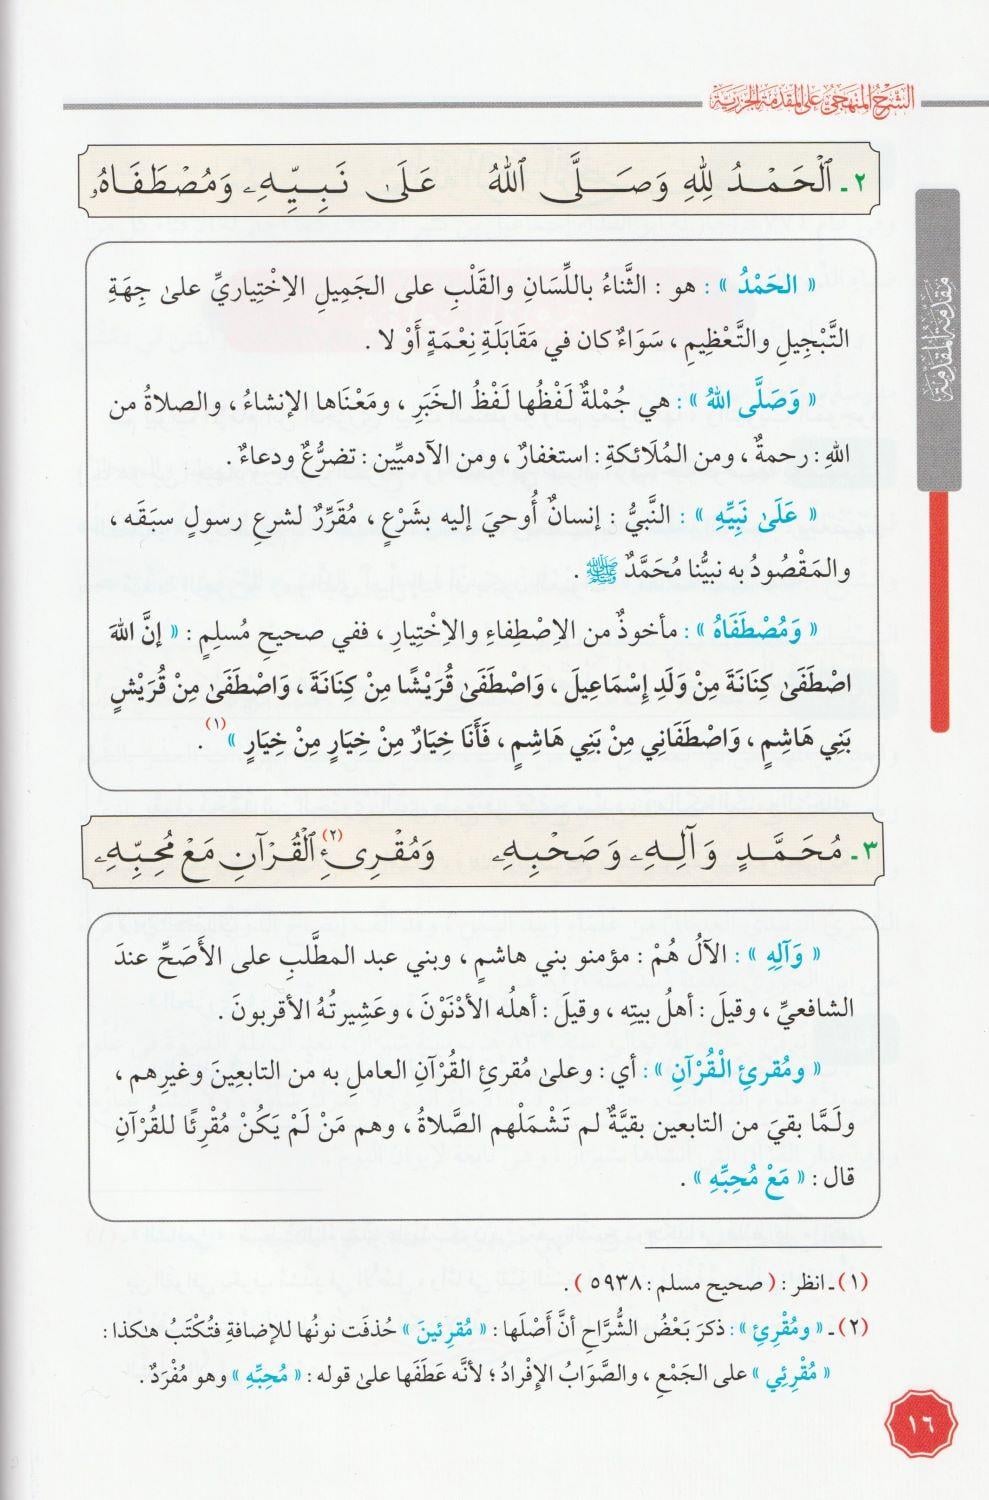 الشرح المنهجي على المقدمة الجزرية
٢ - اَلْحَمْدُ لِلهِ وَصَلَّى اللهُ عَلَى نَبِيِّهِ وَمُصْطَفَاهُ
مقدمة المقدمة
« الحَمْدُ » : هو : الثَّناءُ باللِّسَانِ والقَلْبِ على الجَمِيلِ الاِخْتِياريِّ علىٰ جِهَةِ
التَّبْجِيلِ والتَّعْظِيمِ ، سَوَاءٌ كان في مَقَابَلَةِ نِعْمَةٍ أَوْ لا .
« وَصَلَّى اللهُ » : هي جُمْلةٌ لَفْظُها لَفْظُ الخَبَرِ ، ومَعْنَاها الإنشاءُ ، والصلاةُ من
اللهِ : رحمةٌ ، ومن المُلَائكةِ : استغفارٌ ، ومن الآدميِّين : تضرُّعٌ ودعاءٌ .
« عَلَىٰ نَبِيِّهِ » : النَّبيُّ : إنسانٌ أُوحيَ إليه بشَرْعٍ ، مُقَرِّرٌ لشرعِ رسولٍ سبَقَه ،
والمَقْصُودُ به نبيُّنا مُحَمَّدٌ ﷺ .
« وَمُصْطَفَاهُ » : مأخوذٌ من الاِصْطِفاءِ والاِخْتِيارِ ، ففي صحيحِ مُسلِمٍ : « إنَّ اللهَ
اصْطَفَىٰ كِنَانَةَ مِنْ وَلَدِ إِسْمَاعِيلَ ، وَاصْطَفَىٰ قُرَيْشًا مِنْ كِنَانَةَ ، وَاصْطَفَىٰ مِنْ قُرَيْشٍ
بَنِي هَاشِمٍ ، وَاصْطَفَانِي مِنْ بَنِي هَاشِمٍ ، فَأَنَا خِيَارٌ مِنْ خِيَارٍ مِنْ خِيَارٍ »(١) .
٣ - مُحَمَّدٍ وَآلِهِ وَصَحْبِهِ وَمُقْرِئِ(٢) الْقُرْآنِ مَعْ مُحِبِّهِ
« وَآلِهِ » : الآلُ هُمْ : مؤمنو بني هاشمٍ ، وبني عبد المطَّلبِ على الأَصَحِّ عندَ
الشافعيِّ ، وقيلَ : أهلُ بيتِه ، وقيلَ : أهلُه الأدْنَوْنَ ، وعَشِيرتُهُ الأقربونَ .
« ومُقرئِ الْقُرْآنِ » : أي : وعلىٰ مُقرئِ القُرآنِ العاملِ به من التابعِينَ وغيرِهم ،
ولَمَّا بقيَ من التابعين بقيَّةٌ لم تَشْمَلْهم الصَّلاةُ ، وهم مَنْ لَمْ يَكُنْ مُقْرِئًا للقُرآنِ
قال : « مَعْ مُحِبِّهِ » .
(١) - انظر : ( صحيح مسلم : ٥٩٣٨ ) .
(٢) - « ومُقْرِئِ » : ذكرَ بَعْضُ الشُّرَّاحِ أنَّ أَصْلَها : « مُقرِئينَ » حُذفَت نونُها للإضافةِ فتُكْتَبُ هٰكذا :
« مُقْرِئِي » على الجَمْعِ ، والصَّوَابُ الإفْرادُ ؛ لأنَّه عَطَفَها علىٰ قوله : « مُحِبِّهِ » وهو مُفْرَدٌ .
١٦